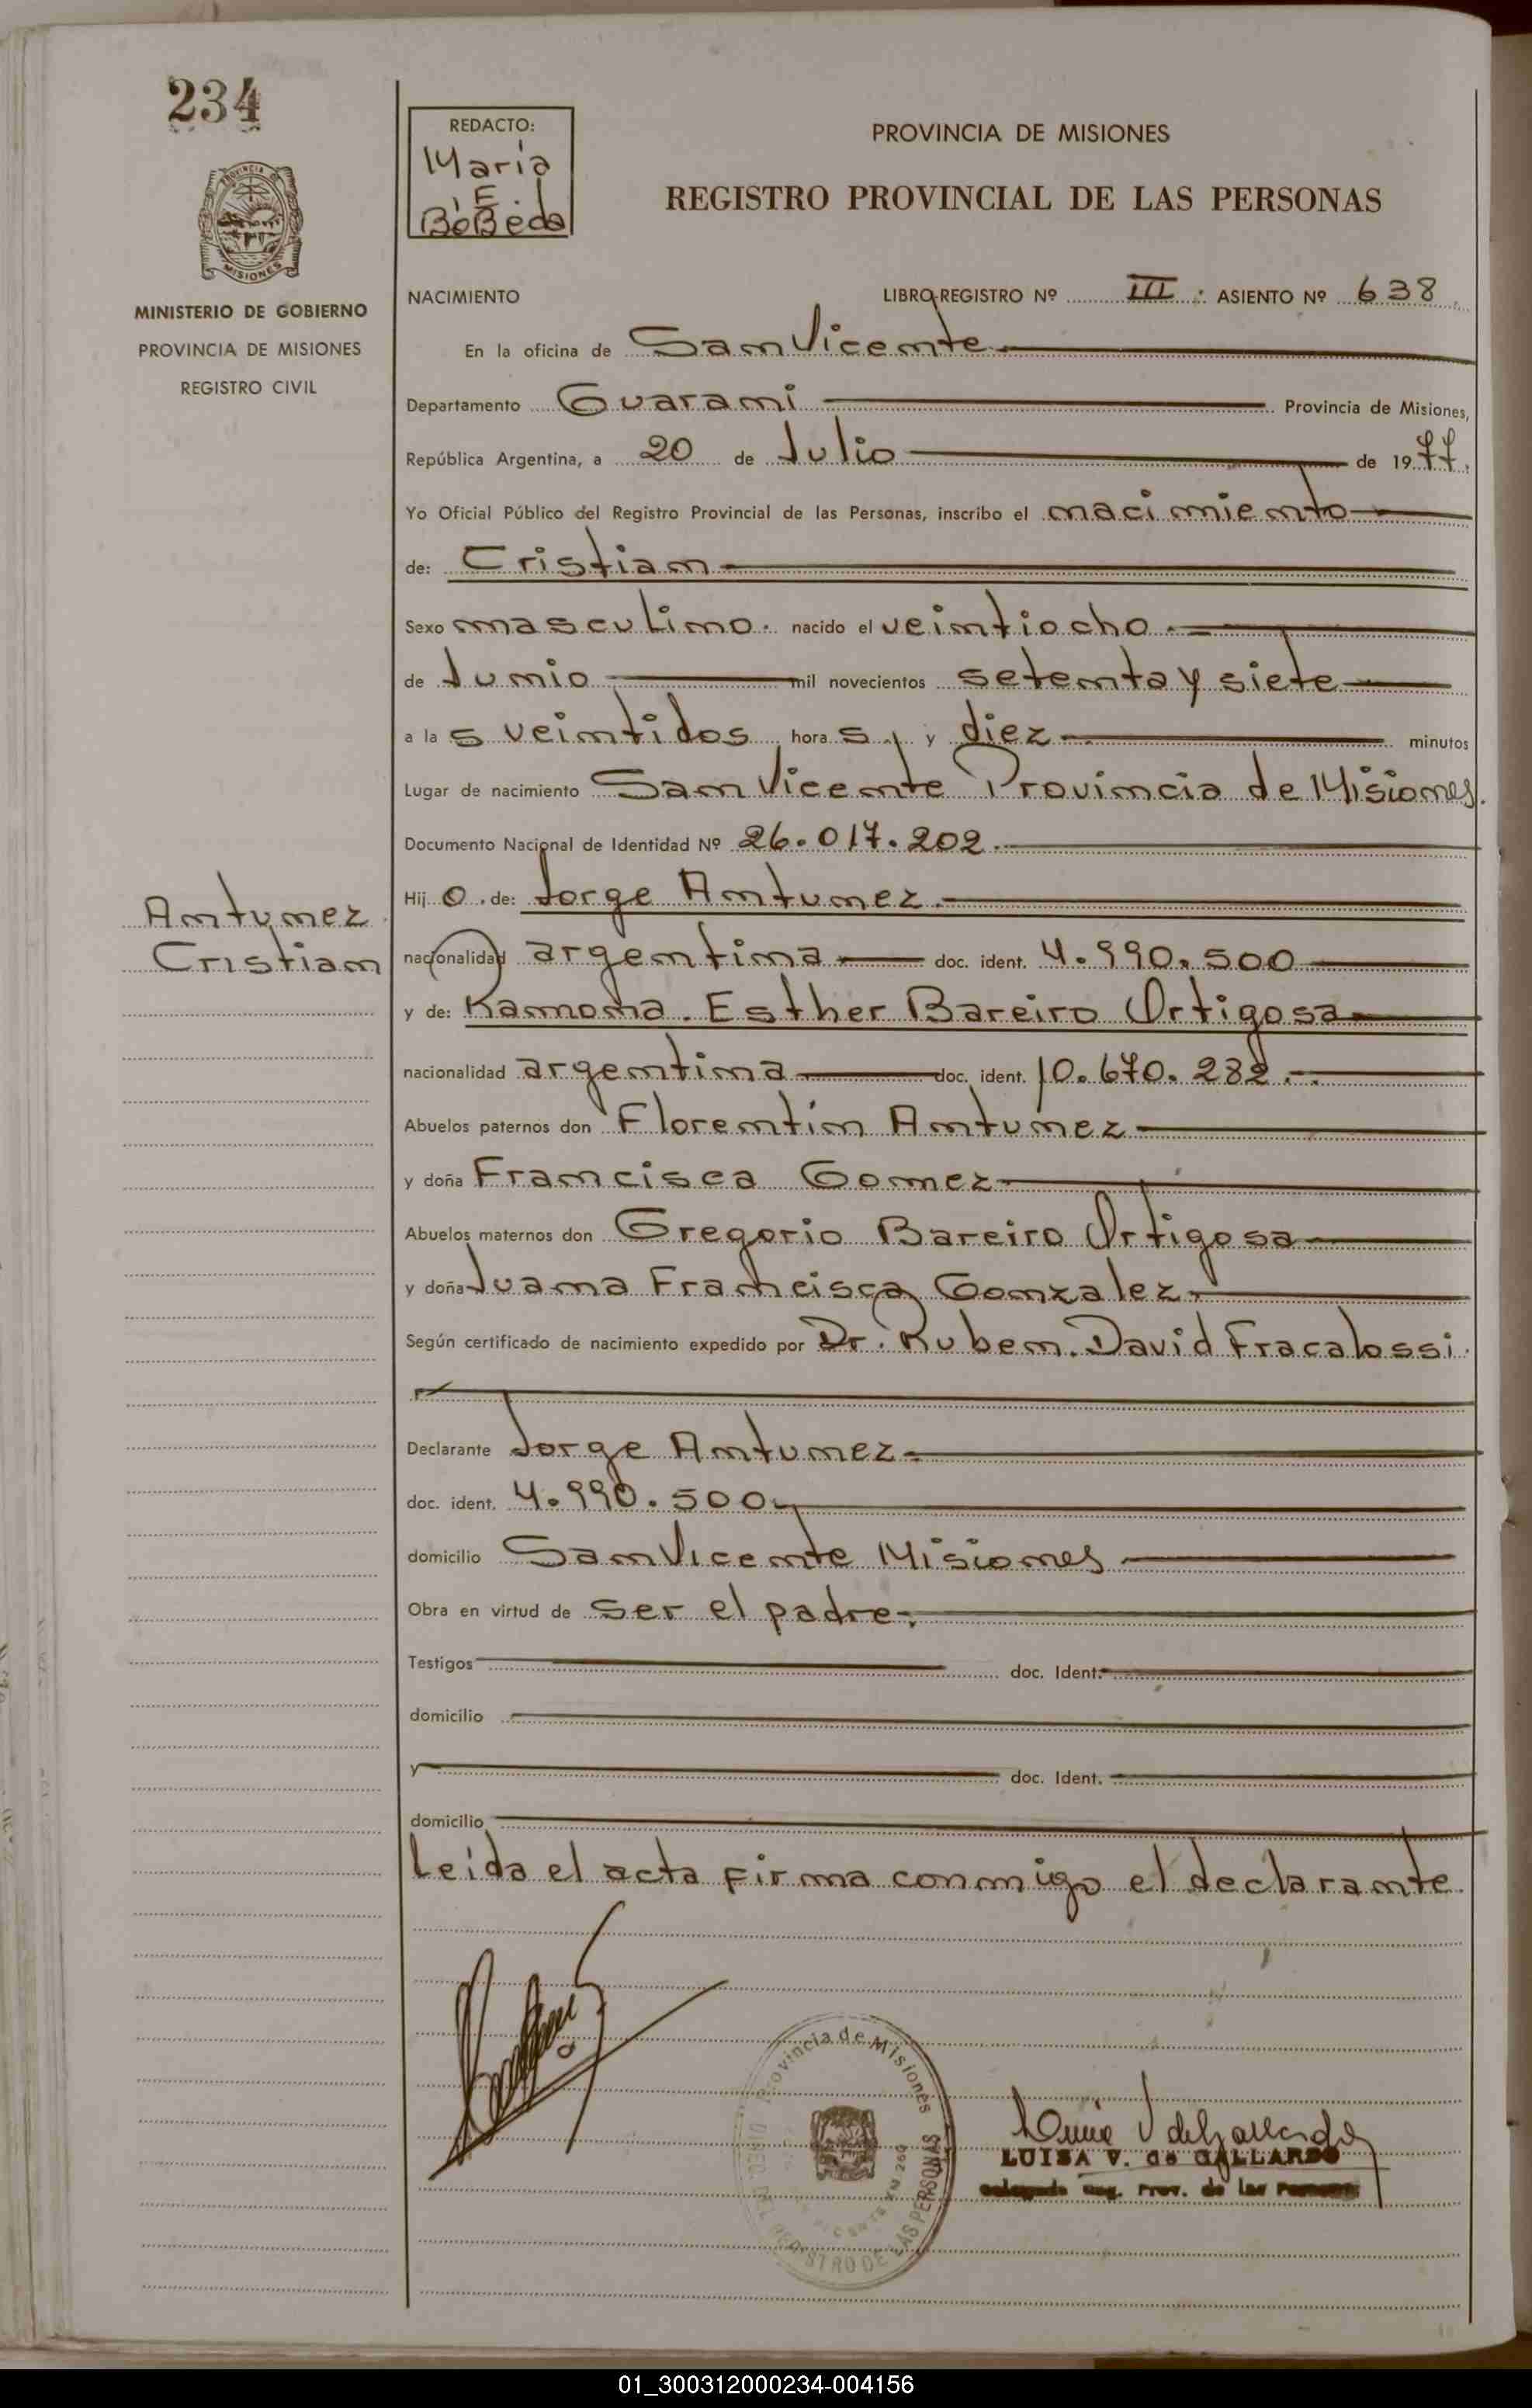 234
PROVINCIA DE
MISIONES
MINISTERIO DE GOBIERNO
PROVINCIA DE MISIONES
REGISTRO CIVIL
Antunez
Cristian
REDACTO:
María
E.
BóBeda
PROVINCIA DE MISIONES
REGISTRO PROVINCIAL DE LAS PERSONAS
NACIMIENTO LIBRO-REGISTRO Nº III. ASIENTO Nº 638
En la oficina de San Vicente
Departamento Guarani Provincia de Misiones,
República Argentina, a 20 de Julio de 1977.
Yo Oficial Público del Registro Provincial de las Personas, inscribo el nacimiento
de: Cristian
Sexo masculino. nacido el veintiocho.
de Junio mil novecientos setenta y siete
a la s veintidos hora s y diez minutos
Lugar de nacimiento San Vicente Provincia de Misiones.
Documento Nacional de Identidad Nº 26.017.202.
Hij o. de: Jorge Antunez.
nacionalidad argentina doc. ident. 4.990.500
y de: Ramona. Esther Bareiro Ortigosa
nacionalidad argentina doc. ident. 10.670.282.
Abuelos paternos don Florentín Antunez
y doña Francisca Gomez
Abuelos maternos don Gregorio Bareiro Ortigosa
y doña Juana Francisca Gonzalez.
Según certificado de nacimiento expedido por Dr. Ruben. David Fracalossi.
Declarante Jorge Antunez.
doc. ident. 4.990.500
domicilio San Vicente Misiones
Obra en virtud de ser el padre.
Testigos doc. Ident.
domicilio
y doc. Ident.
domicilio
Leida el acta firma conmigo el declarante.
Provincia de Misiones
DIREC. DEL REGISTRO DE LAS PERSONAS
LUISA V. de GALLARDO
Delegada Reg. Prov. de las Personas
01_300312000234-004156